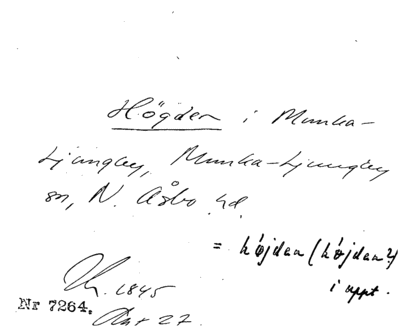 Högden i Munka-
Ljungby, Munka-Ljungby
sn, N. Åsbo hd.
= höjdan (höjdan?)
i uppt.
1845
Nr 7264.
27.